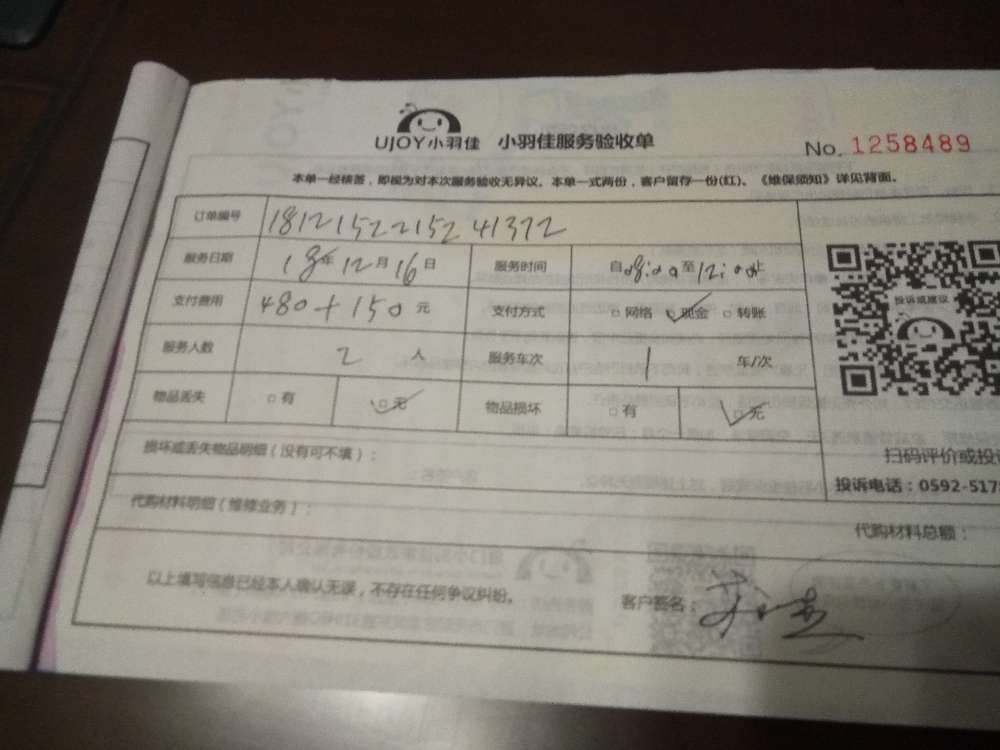 UJOY小羽佳 小羽佳服务验收单 No. 1258489
本单一经核签，即视为对本次服务验收无异议。本单一式两份，客户留存一份(红)。《维保须知》详见背面。
订单编号 18121522152 41372
服务日期 18年12月16日 服务时间 自08:00至12:00止
支付费用 480+150元 支付方式 □网络 ☑现金 □转账
投诉或建议
服务人数 2人 服务车次 1 车/次
物品丢失 □有 ☑无 物品损坏 □有 ☑无
损坏或丢失物品明细（没有可不填）：
扫码评价或投
投诉电话：0592-517
代购材料明细（维修业务）：
代购材料总额：
以上填写信息已经本人确认无误，不存在任何争议纠纷。 客户签名：